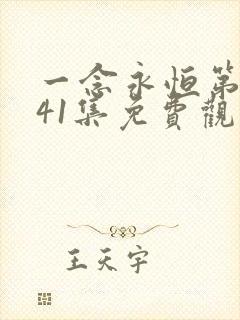 一念永恒第
41集免費觀
王天宇